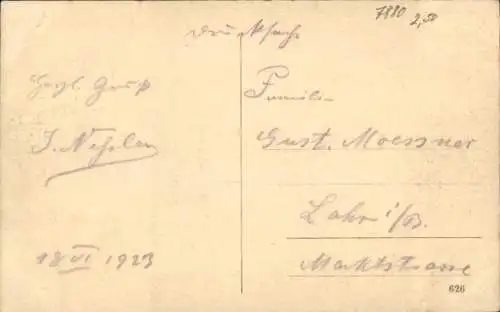 7880
2,50
Drucksache
Herzl. Gruß
J. Nessler
18 VI 1923
Familie
Gust. Moessner
Lahr i/B.
Marktstrasse
626